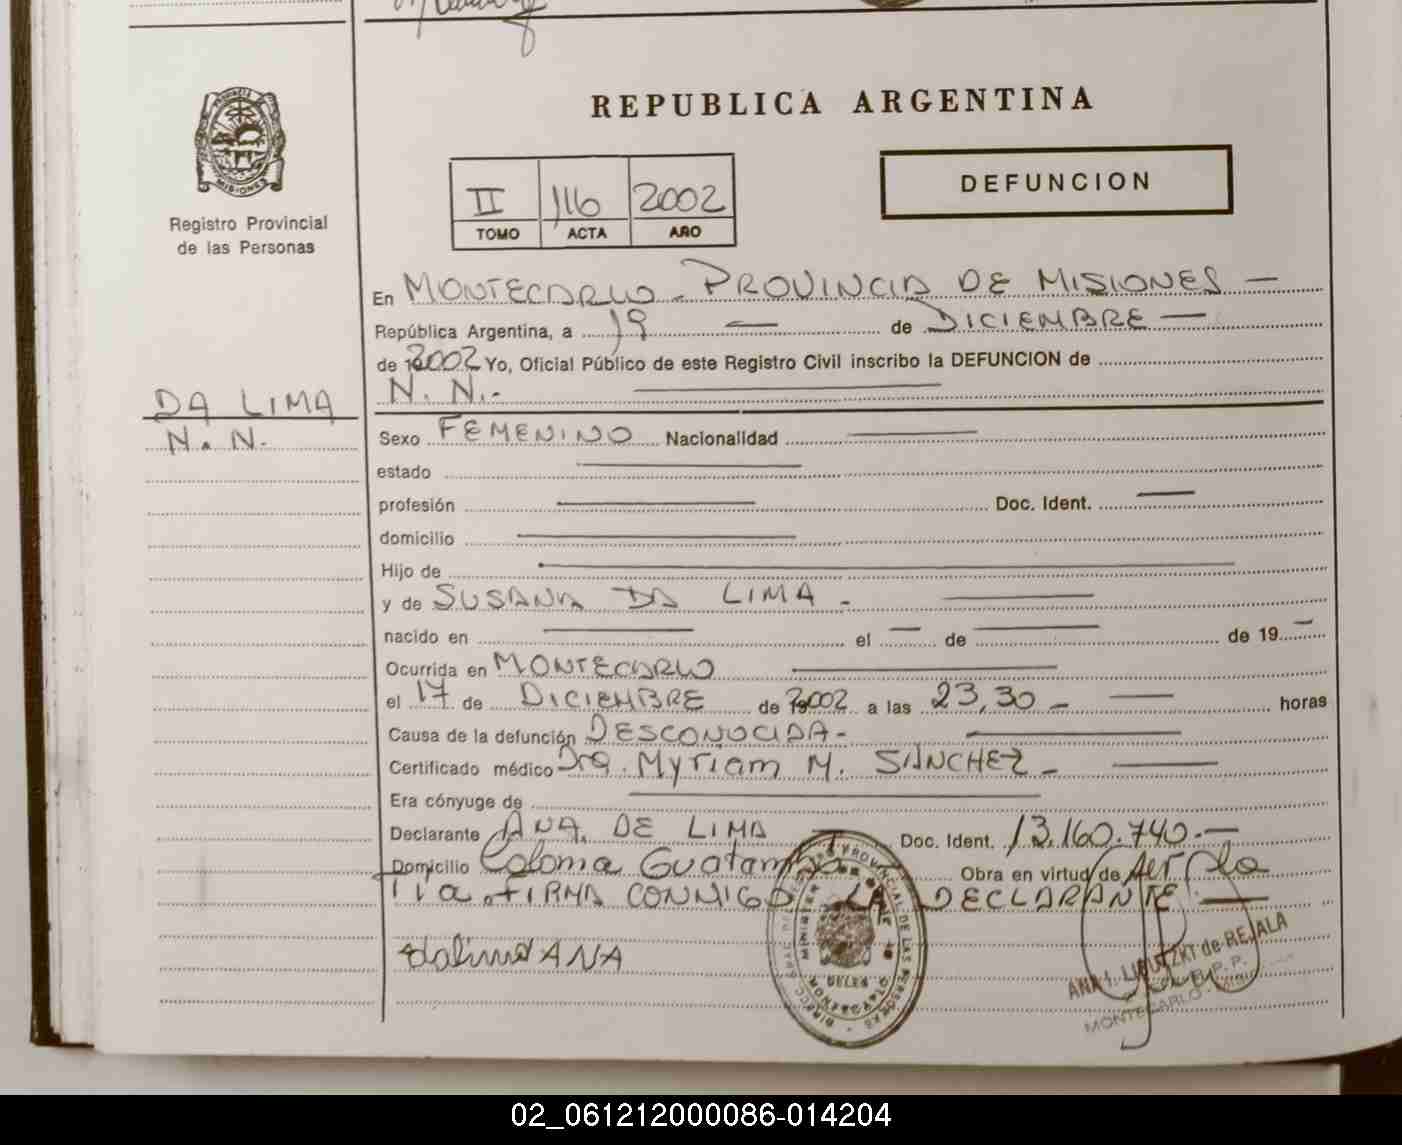 REPUBLICA ARGENTINA
MISIONES
Registro Provincial
de las Personas
II 116 2002
TOMO ACTA AÑO
DEFUNCION
En MONTECARLO - PROVINCIA DE MISIONES —
República Argentina, a 19 — de DICIEMBRE —
de 2002 Yo, Oficial Público de este Registro Civil inscribo la DEFUNCION de
N. N.-
DA LIMA
N. N.
Sexo FEMENINO Nacionalidad —
estado —
profesión — Doc. Ident. —
domicilio —
Hijo de —
y de SUSANA DA LIMA - —
nacido en — el — de — de 19 —
Ocurrida en MONTECARLO —
el 17 de DICIEMBRE de 2002 a las 23,30 - — horas
Causa de la defunción DESCONOCIDA- —
Certificado médico Dra. Myriam M. SANCHEZ - —
Era cónyuge de —
Declarante ANA DE LIMA — Doc. Ident. 13.160.740.—
Domicilio Colonia Obra en virtud de
FIRMA CONMIGO LA DECLARANTE —
ANA
de REJALA
MONTECARLO
02_061212000086-014204